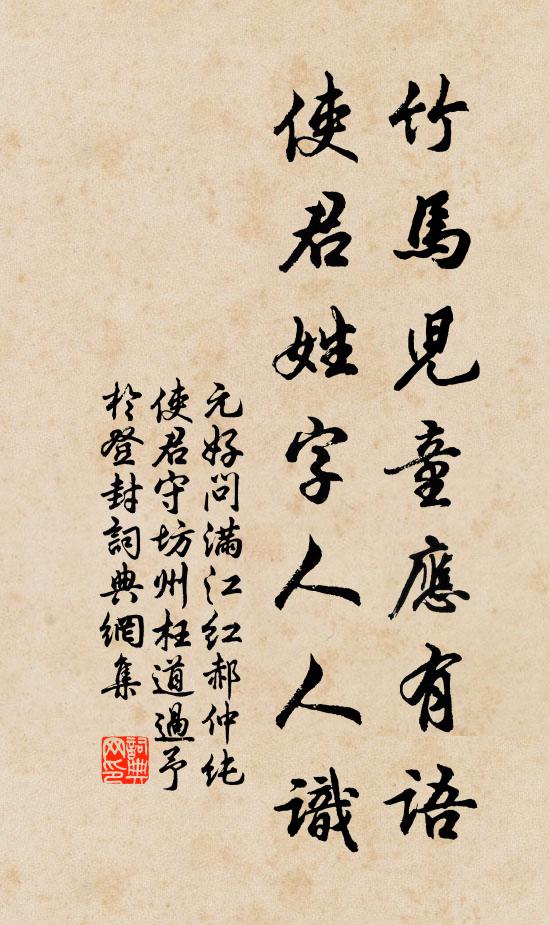 竹馬児童應有語
使君姓字人人識
元好問滿江紅郝仲純
使君守坊州枉道過予
於登封詞典網集
詞典网印